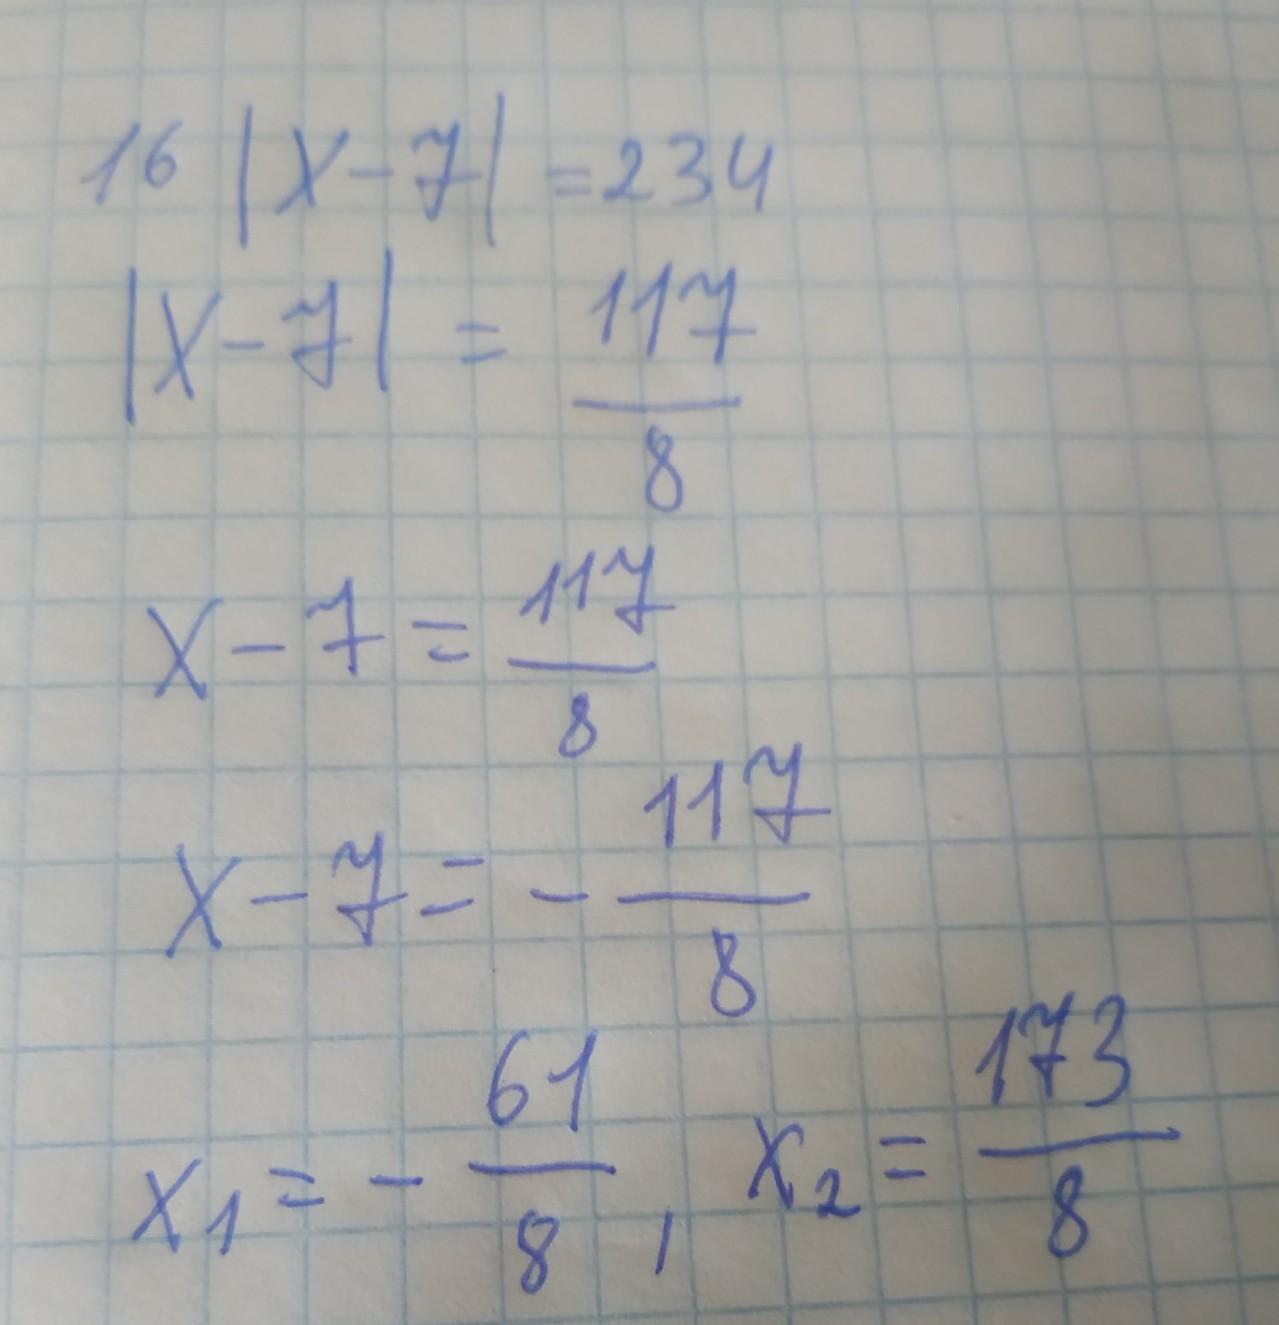 16 |x-7| = 234
|x-7| = 117/8
x-7 = 117/8
x-7 = -117/8
x₁ = -61/8, x₂ = 173/8